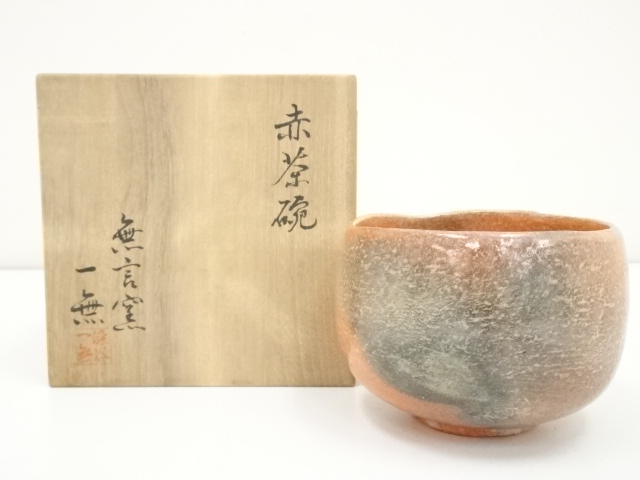 赤茶碗
無言窯
一無